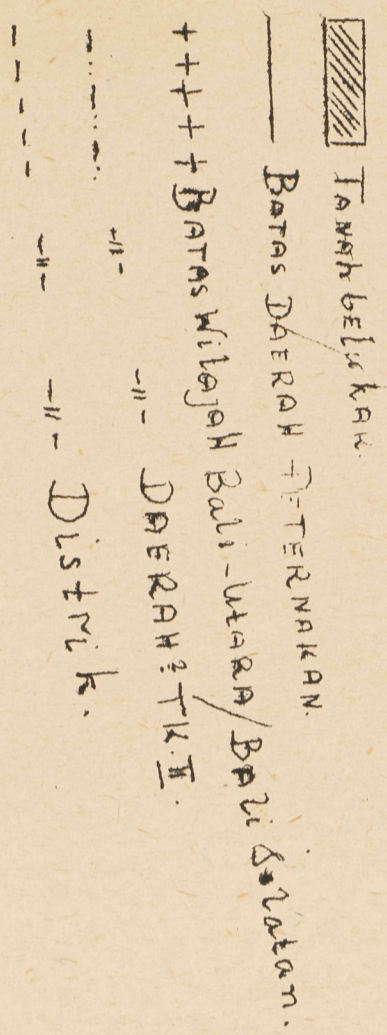 TANAH belukar.
BATAS DAERAH PETERNAKAN.
+++++ BATAS WilAjAH Bali-UtARA/BAli Selatan.
-.-.-. -"- -"- DAERAH2 TK.II.
----- -"- -"- Distrik.